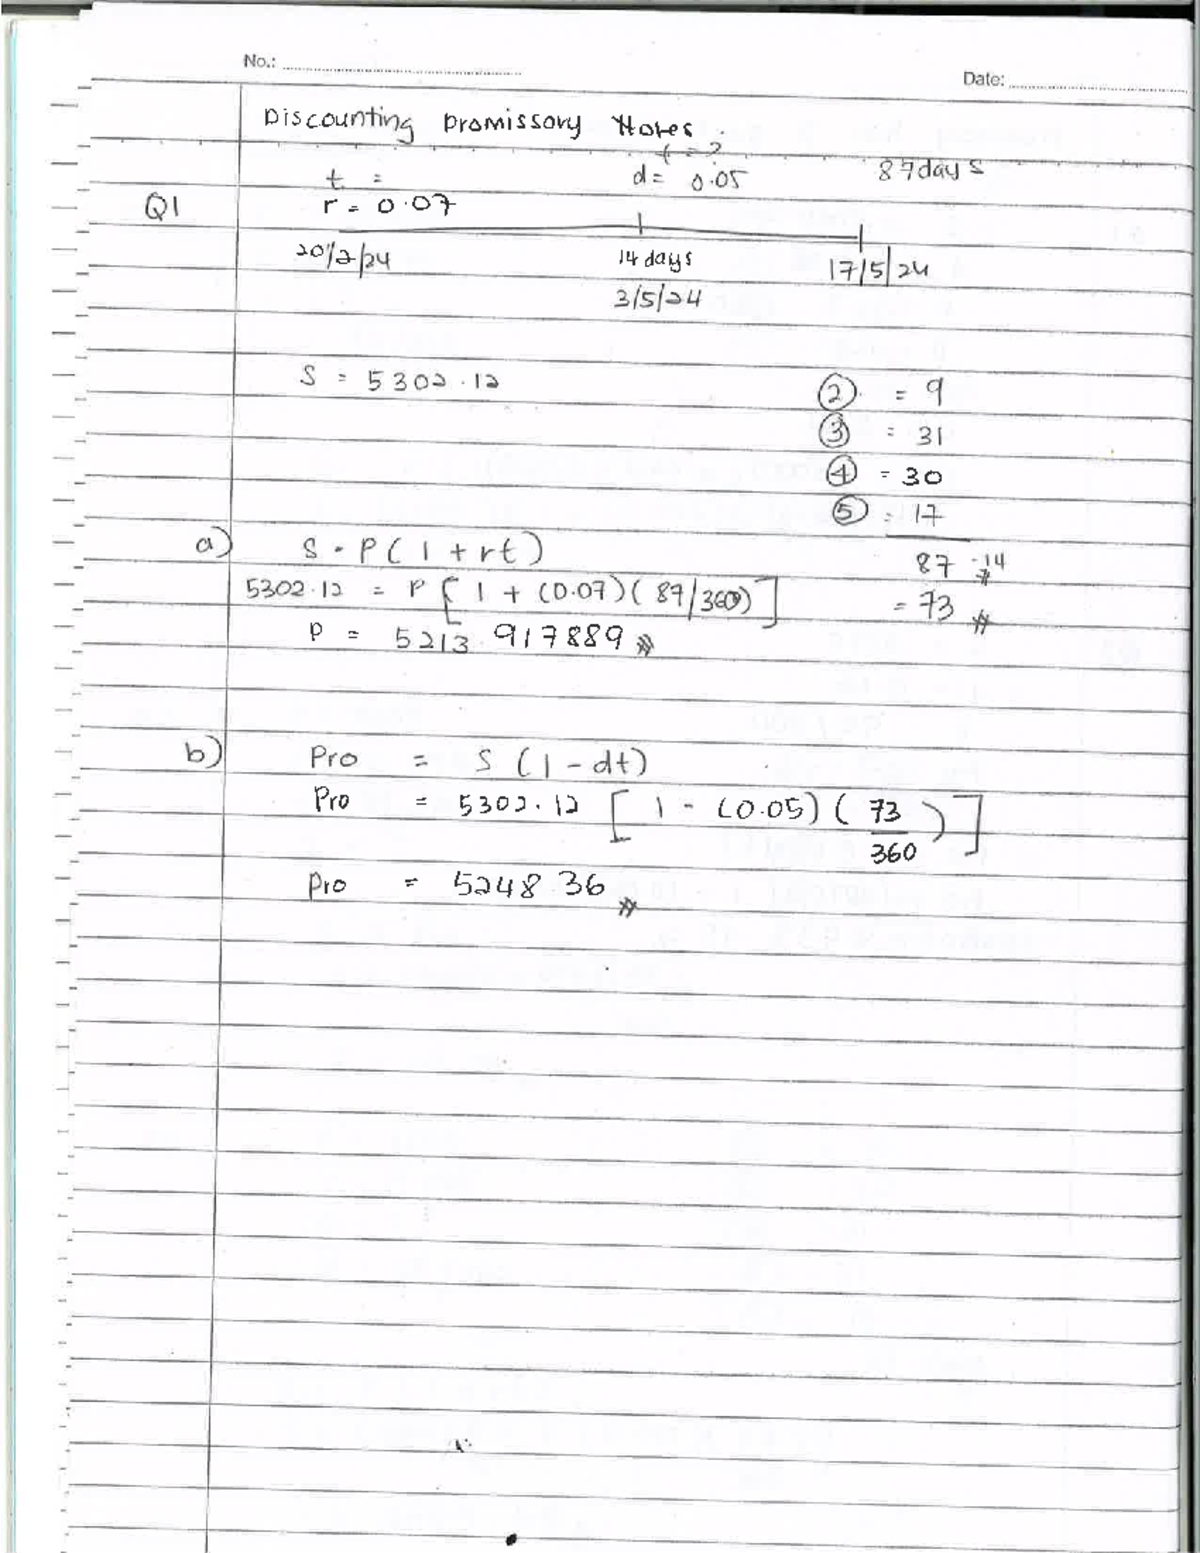 No.:
Date:
Discounting promissory Notes.
t = ?
t =
d = 0.05
87 days
Q1
r = 0.07
20/2/24
14 days
17/5/24
3/5/24
S = 5302.12
② = 9
③ = 31
④ = 30
⑤ = 17
a) S = P(1 + rt)
87 - 14
5302.12 = P [ 1 + (0.07)( 87/360) ]
= 73
P = 5213.917889
b) Pro = S (1 - dt)
Pro = 5302.12 [ 1 - (0.05) ( 73
360 ) ]
Pro = 5248 36